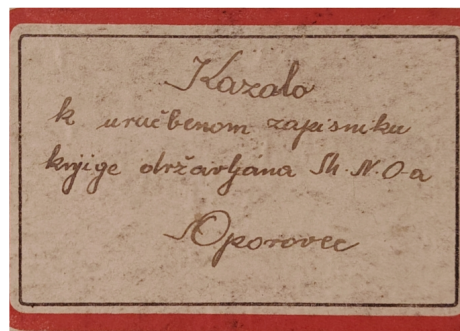 Kazalo
k uručbenom zapisniku
knjige državljana M. N. O-a
Oporovec